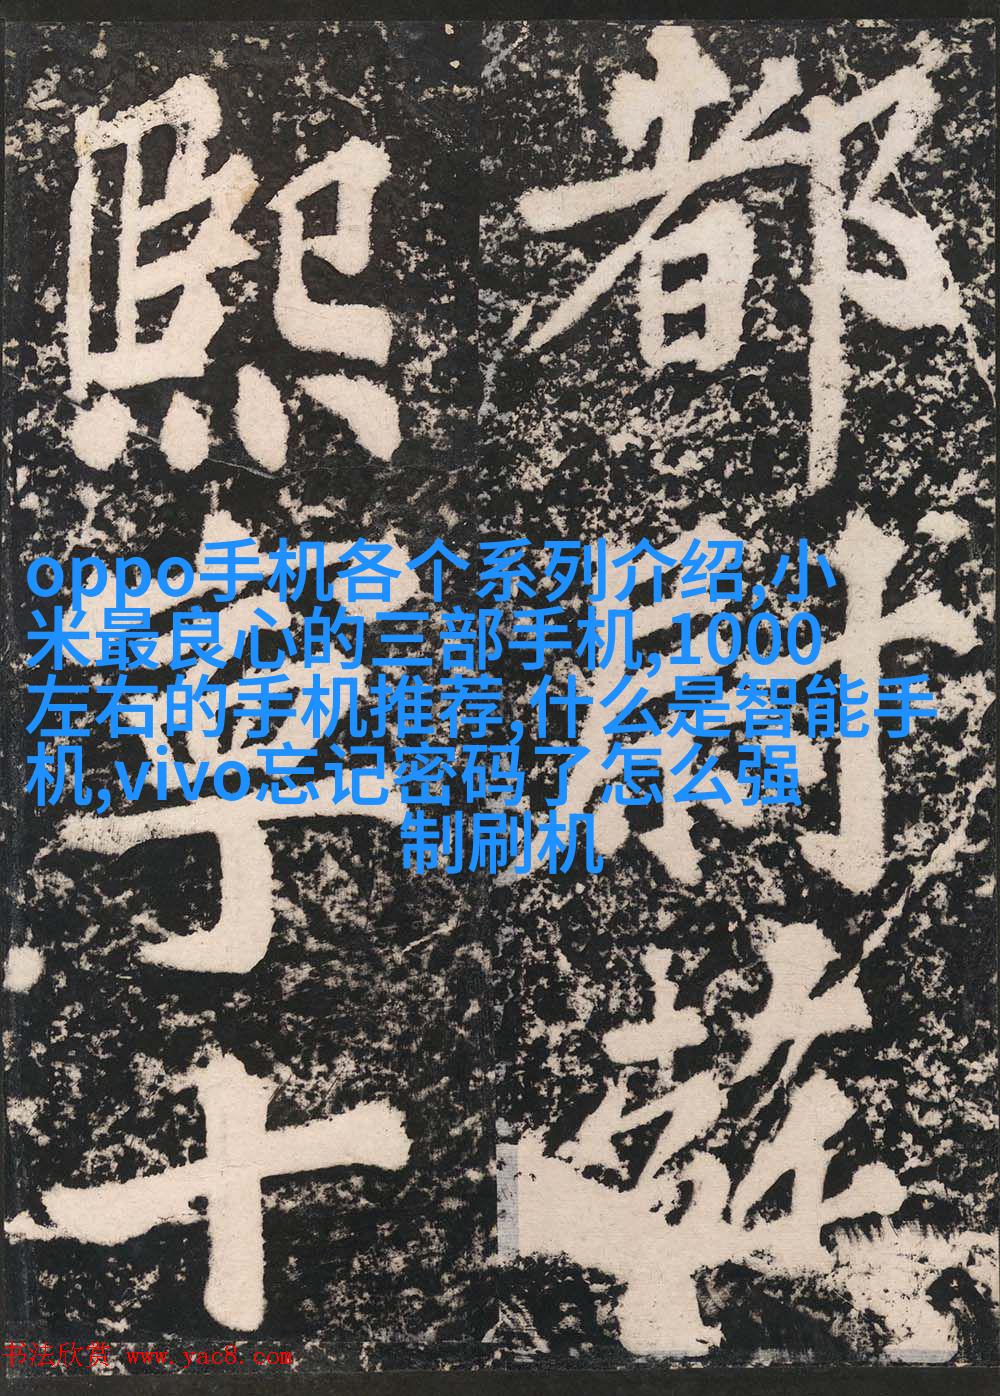 都
尉
薛
熙
亭
十
oppo手机各个系列介绍,小
米最良心的三部手机,1000
左右的手机推荐,什么是智能手
机,vivo忘记密码了怎么强
制刷机
书法欣赏 www.yac8.com